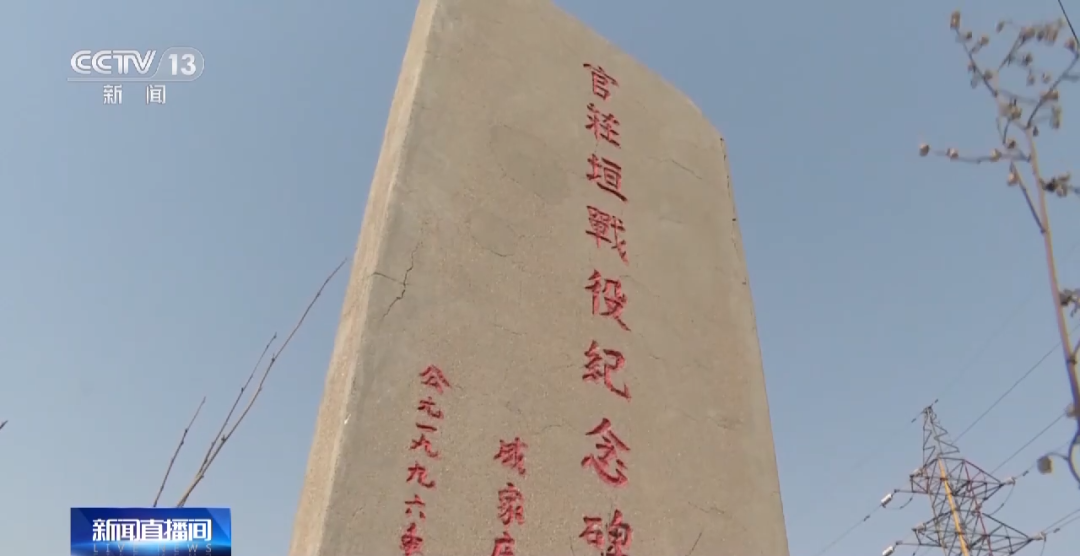 CCTV 13
新闻
官莊垣戰役紀念碑
家庄
公元一九九六年
新闻直播间
LIVE NEWS